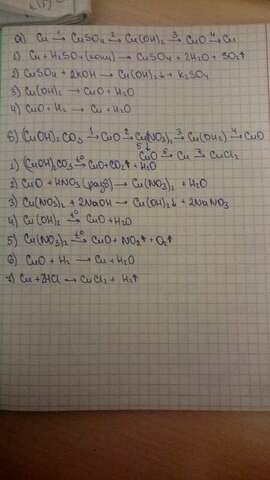 а) Cu →¹ CuSO₄ →² Cu(OH)₂ →³ CuO →⁴ Cu
1) Cu + H₂SO₄ (конц) → CuSO₄ + 2H₂O + SO₂↑
2) CuSO₄ + 2KOH → Cu(OH)₂↓ + K₂SO₄
3) Cu(OH)₂ → CuO + H₂O
4) CuO + H₂ → Cu + H₂O
б) (CuOH)₂CO₃ →¹ CuO →² Cu(NO₃)₂ →³ Cu(OH)₂ →⁴ CuO
5↓ CuO →⁶ Cu →⁷ CuCl₂
1) (CuOH)₂CO₃ →t° CuO + CO₂↑ + H₂O
2) CuO + HNO₃ (разб) → Cu(NO₃)₂ + H₂O
3) Cu(NO₃)₂ + 2NaOH → Cu(OH)₂↓ + 2NaNO₃
4) Cu(OH)₂ →t° CuO + H₂O
5) Cu(NO₃)₂ →t° CuO + NO₂↑ + O₂↑
6) CuO + H₂ → Cu + H₂O
7) Cu + 2HCl → CuCl₂ + H₂↑